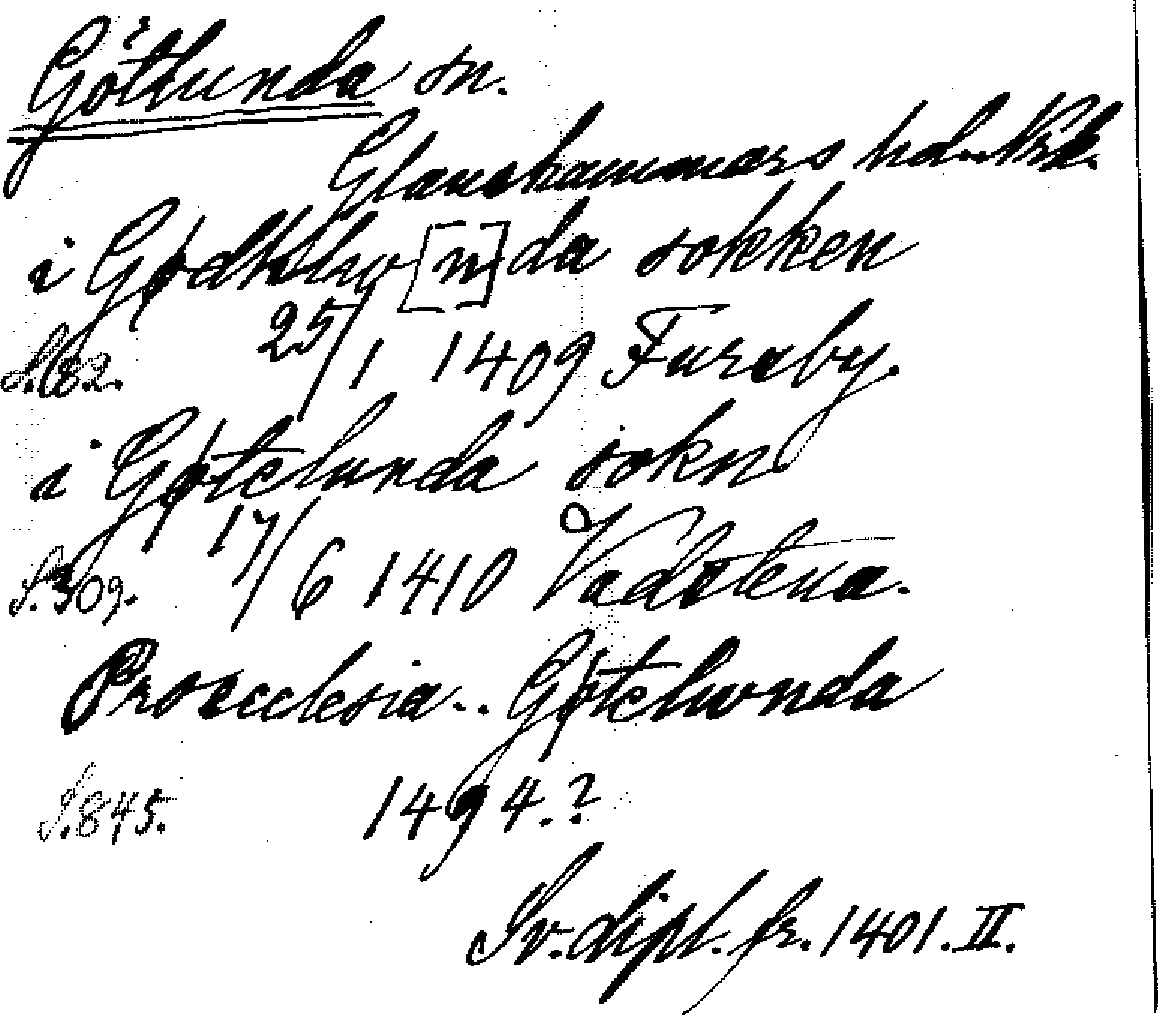 Götlunda sn.
Glanshammars hd. Nrk.
i Gødhlw[n]da sokken
S. 82. 25/1 1409 Furaby.
i Gøtelunda sokn
S. 309. 17/6 1410 Vadstena.
Pro ecclesia .. Gøtelwnda
S. 845. 1494.?
Sv. dipl. fr. 1401. II.